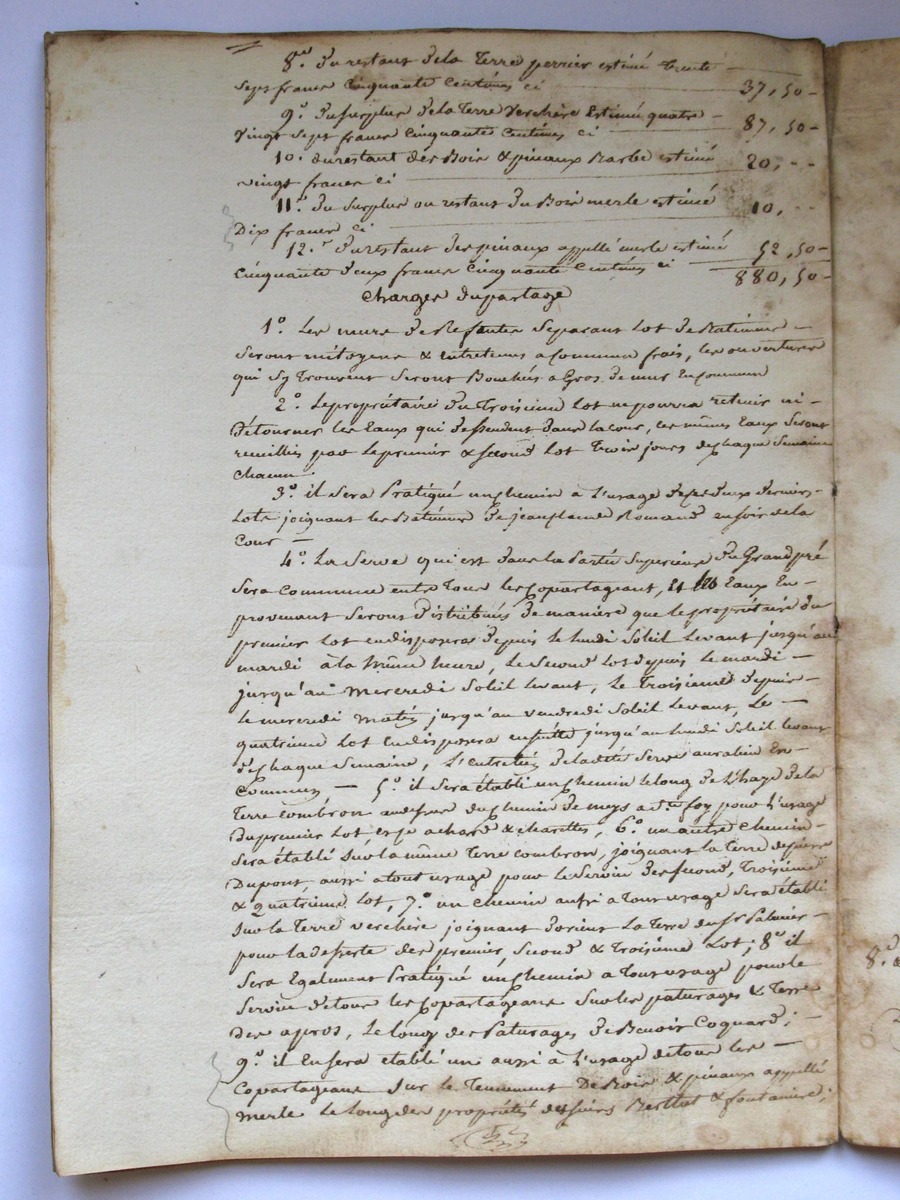 8.° Du restant de la Terre perrier estimé Trente
sept francs Cinquante Centimes ci 37,50
9.° Du surplus de la Terre Verchère Estimé quatre
Vingt Sept francs Cinquante Centimes ci 87,50
10.° du restant des Bois & pinaux Barbe estimé
vingt francs ci 20,
11.° Du Surplus ou restant Du Bois merle estimé
Dix francs ci 10,
12.° Du restant des pinaux appellé merle estimé
Cinquante deux francs Cinquante Centimes ci 52,50
880,50
Charges du partage
1.° Les murs de Refentes Separant Lot de Batimens
Seront mitoyens & entretenus a Commun frais, les ouvertures
qui sy Trouvent Seront Bouchés a Gros de mur En commun
2.° Le propriétaire Du Troisieme Lot ne pourra retenir ni
Détourner les Eaux qui dessendent dans la cour, ces mêmes Eaux Seront
reuillies par Le premier & second Lot Trois jours de chaque Semaine
chacun.
3.° il Sera Pratiqué un chemin à L'usage des deux derniers
Lots joignant les Batimens De jean Romand en soir de la
Cour
4.° La Serve qui est dans la Partie Superieure du Grand pré
Sera Commune entre Tous les Copartageant, et les Eaux En
provenant Seront Distribués De manière que le propriétaire Du
premier Lot en disposera depuis le lundi Soleil Levant jusqu'au
mardi à la Même heure, Le Second Lot depuis le mardi
jusqu'au Mercredi Soleil levant, Le Troisieme depuis
le mercredi Matin jusqu'au vendredi Soleil Levant, Le
quatrieme Lot En disposera ensuite jusqu'au lundi Soleil levant
de chaque Semaine, L'Entretien de ladite Serve aura lieu En
Commun — 5.° il Sera établi un chemin le long de L'haye de la
Terre Combron du chemin de meys a Ste foy pour L'usage
Du premier Lot, & charettes, 6.° un autre Chemin
Sera établi Sur la même Terre Combron, joignant la Terre de pierre
Dupont, aussi a tout usage pour le Servin des second, Troisieme
& quatrieme Lot, 7.° un chemin aussi a Tout usage Sera établi
Sur la Terre verchère joignant d'orient La Terre du Sr Palmier
pour la desserte des premier, Second & Troisieme Lot; 8.° il
Sera Egalement Pratiqué un chemin a Tout usage pour le
Servin de tous les Copartageans Sur les paturages & Terre
Des apros, Le long des Paturages De Benoit Coquard;
9.° il En sera établi un aussi à L'usage de tous les
Copartageans Sur le Tennement De Bois & pinaux appellé
merle Le long des propriétés des sieurs Berthet & fontaniere;